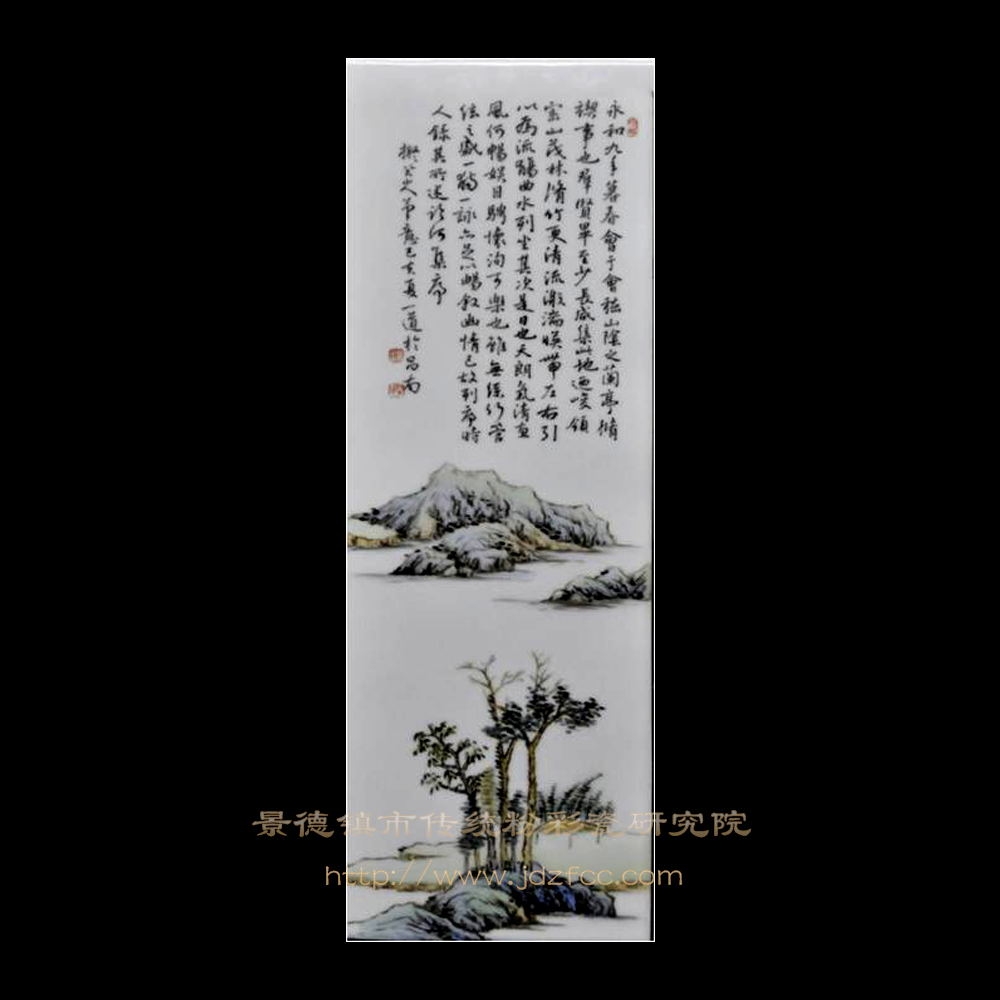 永和九年暮春會于會稽山陰之蘭亭脩
禊事也羣賢畢至少長咸集此地迺峻領
崇山茂林脩竹更清流激湍暎帶左右引
以為流觴曲水列坐其次是日也天朗氣清惠
風何暢娛目騁懷洵可樂也雖無絲竹管
絃之盛一觴一詠亦足以暢敘幽情已故列序時
人錄其所述臨河集序
擬筆意己亥夏一道於昌南
景德镇市传统粉彩瓷研究院
http://www.jdzfcc.com